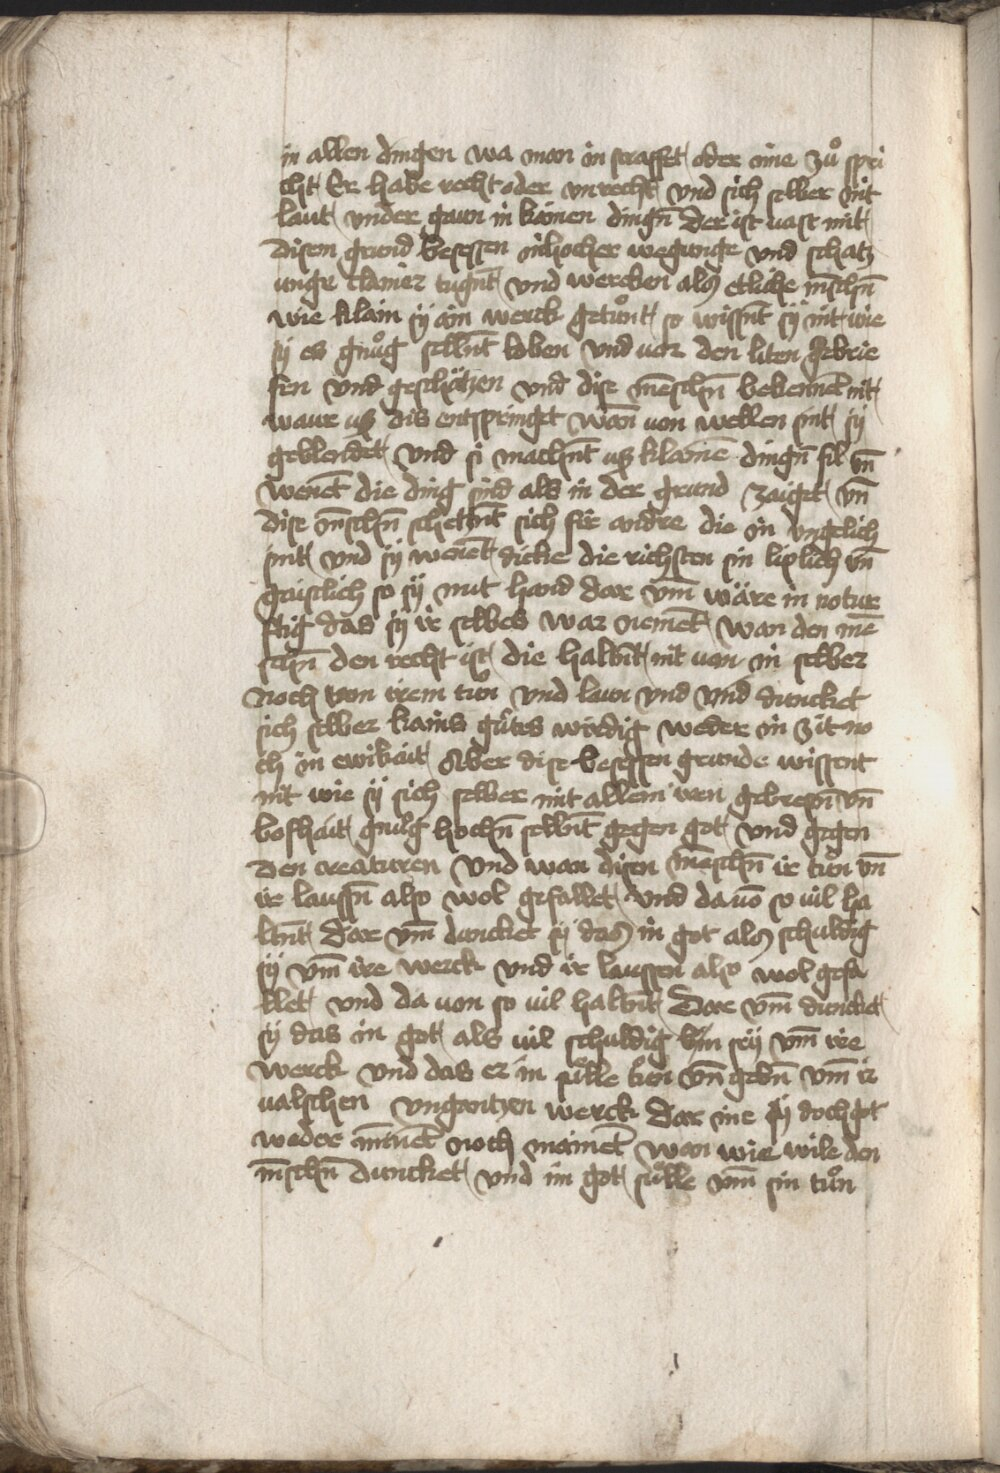 in allen dingen wa man in straffet oder ime zuͦ spri
cht Er habe recht oder vnrecht vnd sich selber nit
laut vnder gaun in kainen dingn̄ der ist uast mit
disem grund besessen in hocher wegunge vnd schatz
unge claĩer tugn̄t vnd wercken als etliche m̄schn̄
wie klain sÿ ain werck getuͦnt so wissn̄t sÿ nit wie
sÿ es gnuͦg sellnt loben vnd uor den liten gebrie
sen vnd geschätzen vnd dise mēschn̄ bekennēt nit
waur us dis entspringet wān uon wellen sint sÿ
geblendet vnd si machn̄t us klainē dingn̄ fil vn̄
wenēt die ding sind als in der grund zaiget vn̄
dise m̄schn̄ schetzn̄t sich für andre die in vngelich
sint vnd sÿ wenēt dicke die richsten sin liplich vn̄
gaistlich so sÿ nut hand dar vm̄ wäre in notur
ftig das sÿ ir selbes war nemēt wan den mē
schn̄ den recht ist die haltn̄t nit uon in selber
noch von irem tun vnd laun vnd vnd duncket
sich selber kains guͦtes wirdig weder in zit no
ch in ewikait Aber dise besessen grunde wissent
nit wie sÿ sich selber mit allem iren gebresn̄ vn̄
boshait gnuͦg hochn̄ sellnt̄ gegen got vnd gegen
den creaturen vnd wan disen mēschn̄ ir tuͦn vn̄
ir laussn̄ also wol gefallet vnd da uō so uil ha
ltn̄t dar vm̄ duncket sÿ das in got als schuldig
sÿ vm̄ ire werck vnd ir laussen also wol gefa
llet vnd da uon so uil haltn̄t Dar vm̄ duncket
sÿ das in got als uil schuldig sÿ vm̄ ire
werck vnd das er in sülle tun vn̄ gebn̄ vm̄ ir
ualschen vngantzen werck dar ine sÿ doch got
weder m̄nēt noch mainēt wan wie wile den
m̄schn̄ duncket vnd im got sülle vm̄ sin tuͦn